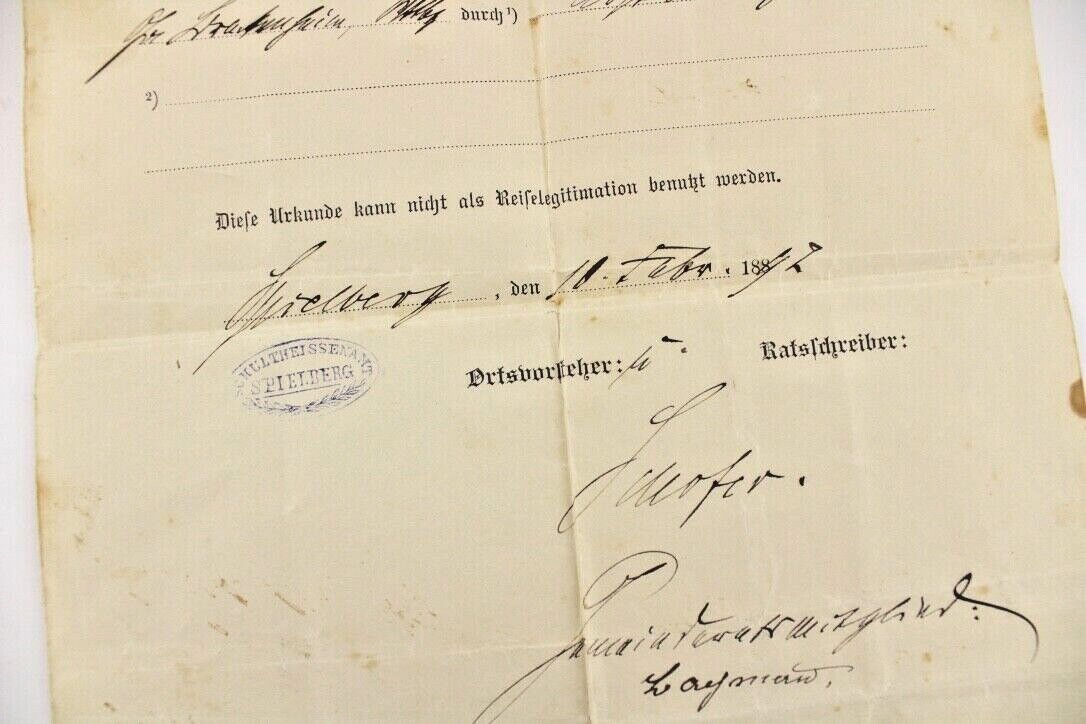 Brackenheim, durch¹)
²)
Diese Urkunde kann nicht als Reiselegitimation benutzt werden.
Spielberg, den 10. Febr. 1892
SCHULTHEISSENAMT
SPIELBERG
Ortsvorsteher: u. Ratsschreiber:
Schofer.
Gemeinderatsmitglied: